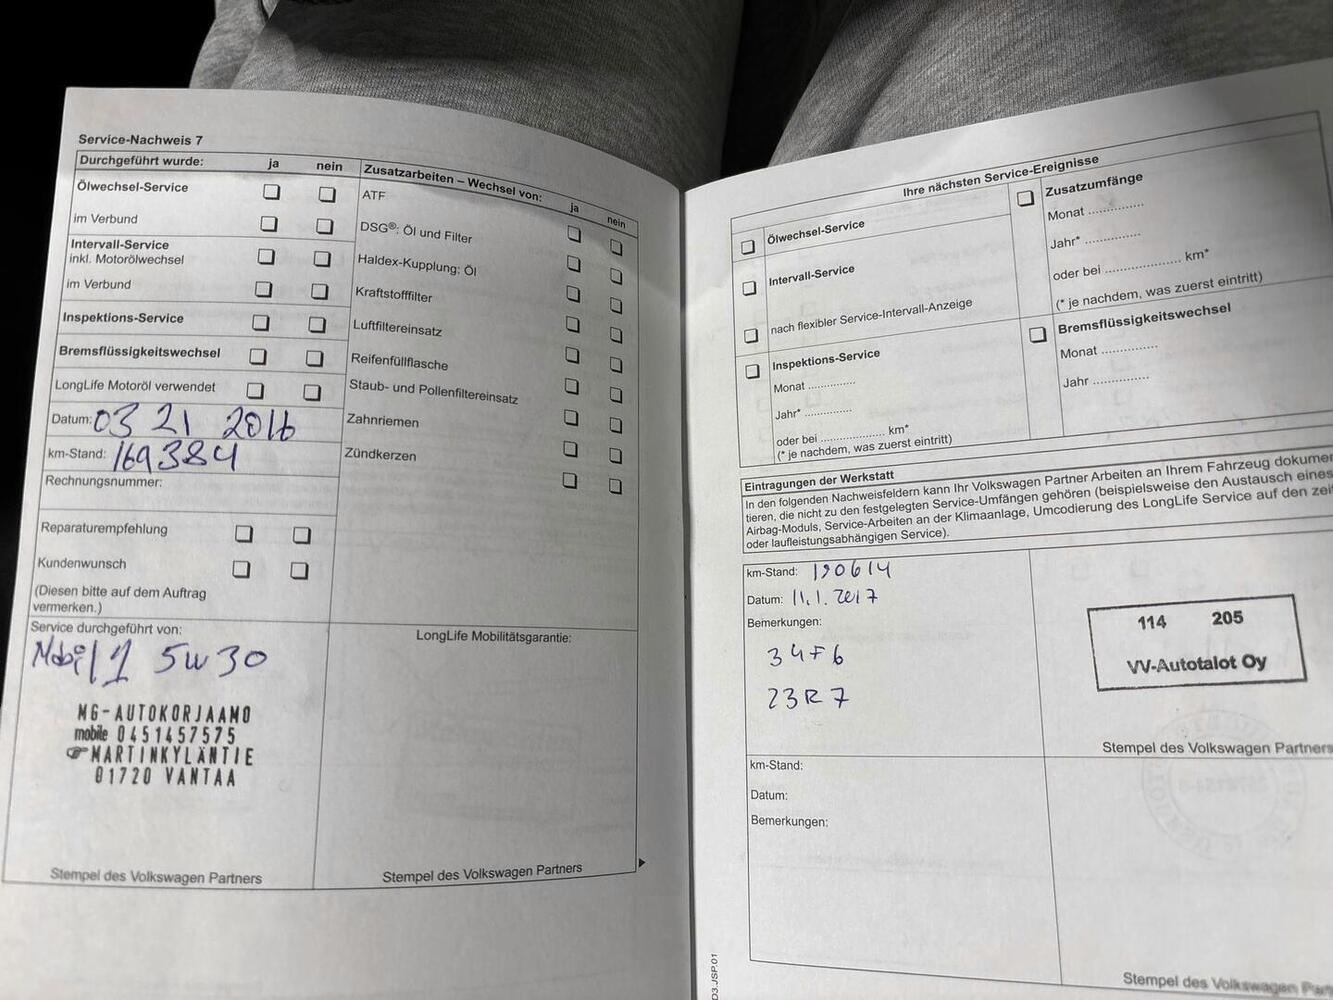 Service-Nachweis 7
Durchgeführt wurde: ja nein
Ölwechsel-Service
im Verbund
Intervall-Service
inkl. Motorölwechsel
im Verbund
Inspektions-Service
Bremsflüssigkeitswechsel
LongLife Motoröl verwendet
Datum: 03 21 2016
km-Stand: 169384
Rechnungsnummer:
Reparaturempfehlung
Kundenwunsch
(Diesen bitte auf dem Auftrag
vermerken.)
Service durchgeführt von:
Mobil 1 5W30
MG-AUTOKORJAAMO
mobile 0451457575
MARTINKYLÄNTIE
01720 VANTAA
Stempel des Volkswagen Partners
Zusatzarbeiten – Wechsel von: ja nein
ATF
DSG®: Öl und Filter
Haldex-Kupplung: Öl
Kraftstofffilter
Luftfiltereinsatz
Reifenfüllflasche
Staub- und Pollenfiltereinsatz
Zahnriemen
Zündkerzen
LongLife Mobilitätsgarantie:
Stempel des Volkswagen Partners
Ihre nächsten Service-Ereignisse
Ölwechsel-Service
Intervall-Service
nach flexibler Service-Intervall-Anzeige
Inspektions-Service
Monat ..............
Jahr* ..............
oder bei ................... km*
(* je nachdem, was zuerst eintritt)
Zusatzumfänge
Monat ..............
Jahr* ..............
oder bei ................... km*
(* je nachdem, was zuerst eintritt)
Bremsflüssigkeitswechsel
Monat ..............
Jahr ..............
Eintragungen der Werkstatt
In den folgenden Nachweisfeldern kann Ihr Volkswagen Partner Arbeiten an Ihrem Fahrzeug dokumen
tieren, die nicht zu den festgelegten Service-Umfängen gehören (beispielsweise den Austausch eines
Airbag-Moduls, Service-Arbeiten an der Klimaanlage, Umcodierung des LongLife Service auf den zeit
oder laufleistungsabhängigen Service).
km-Stand: 190614
Datum: 11.1.2017
Bemerkungen:
34F6
23R7
114 205
VV-Autotalot Oy
Stempel des Volkswagen Partners
km-Stand:
Datum:
Bemerkungen:
Stempel des Volkswagen Partn
D3.JSP.01